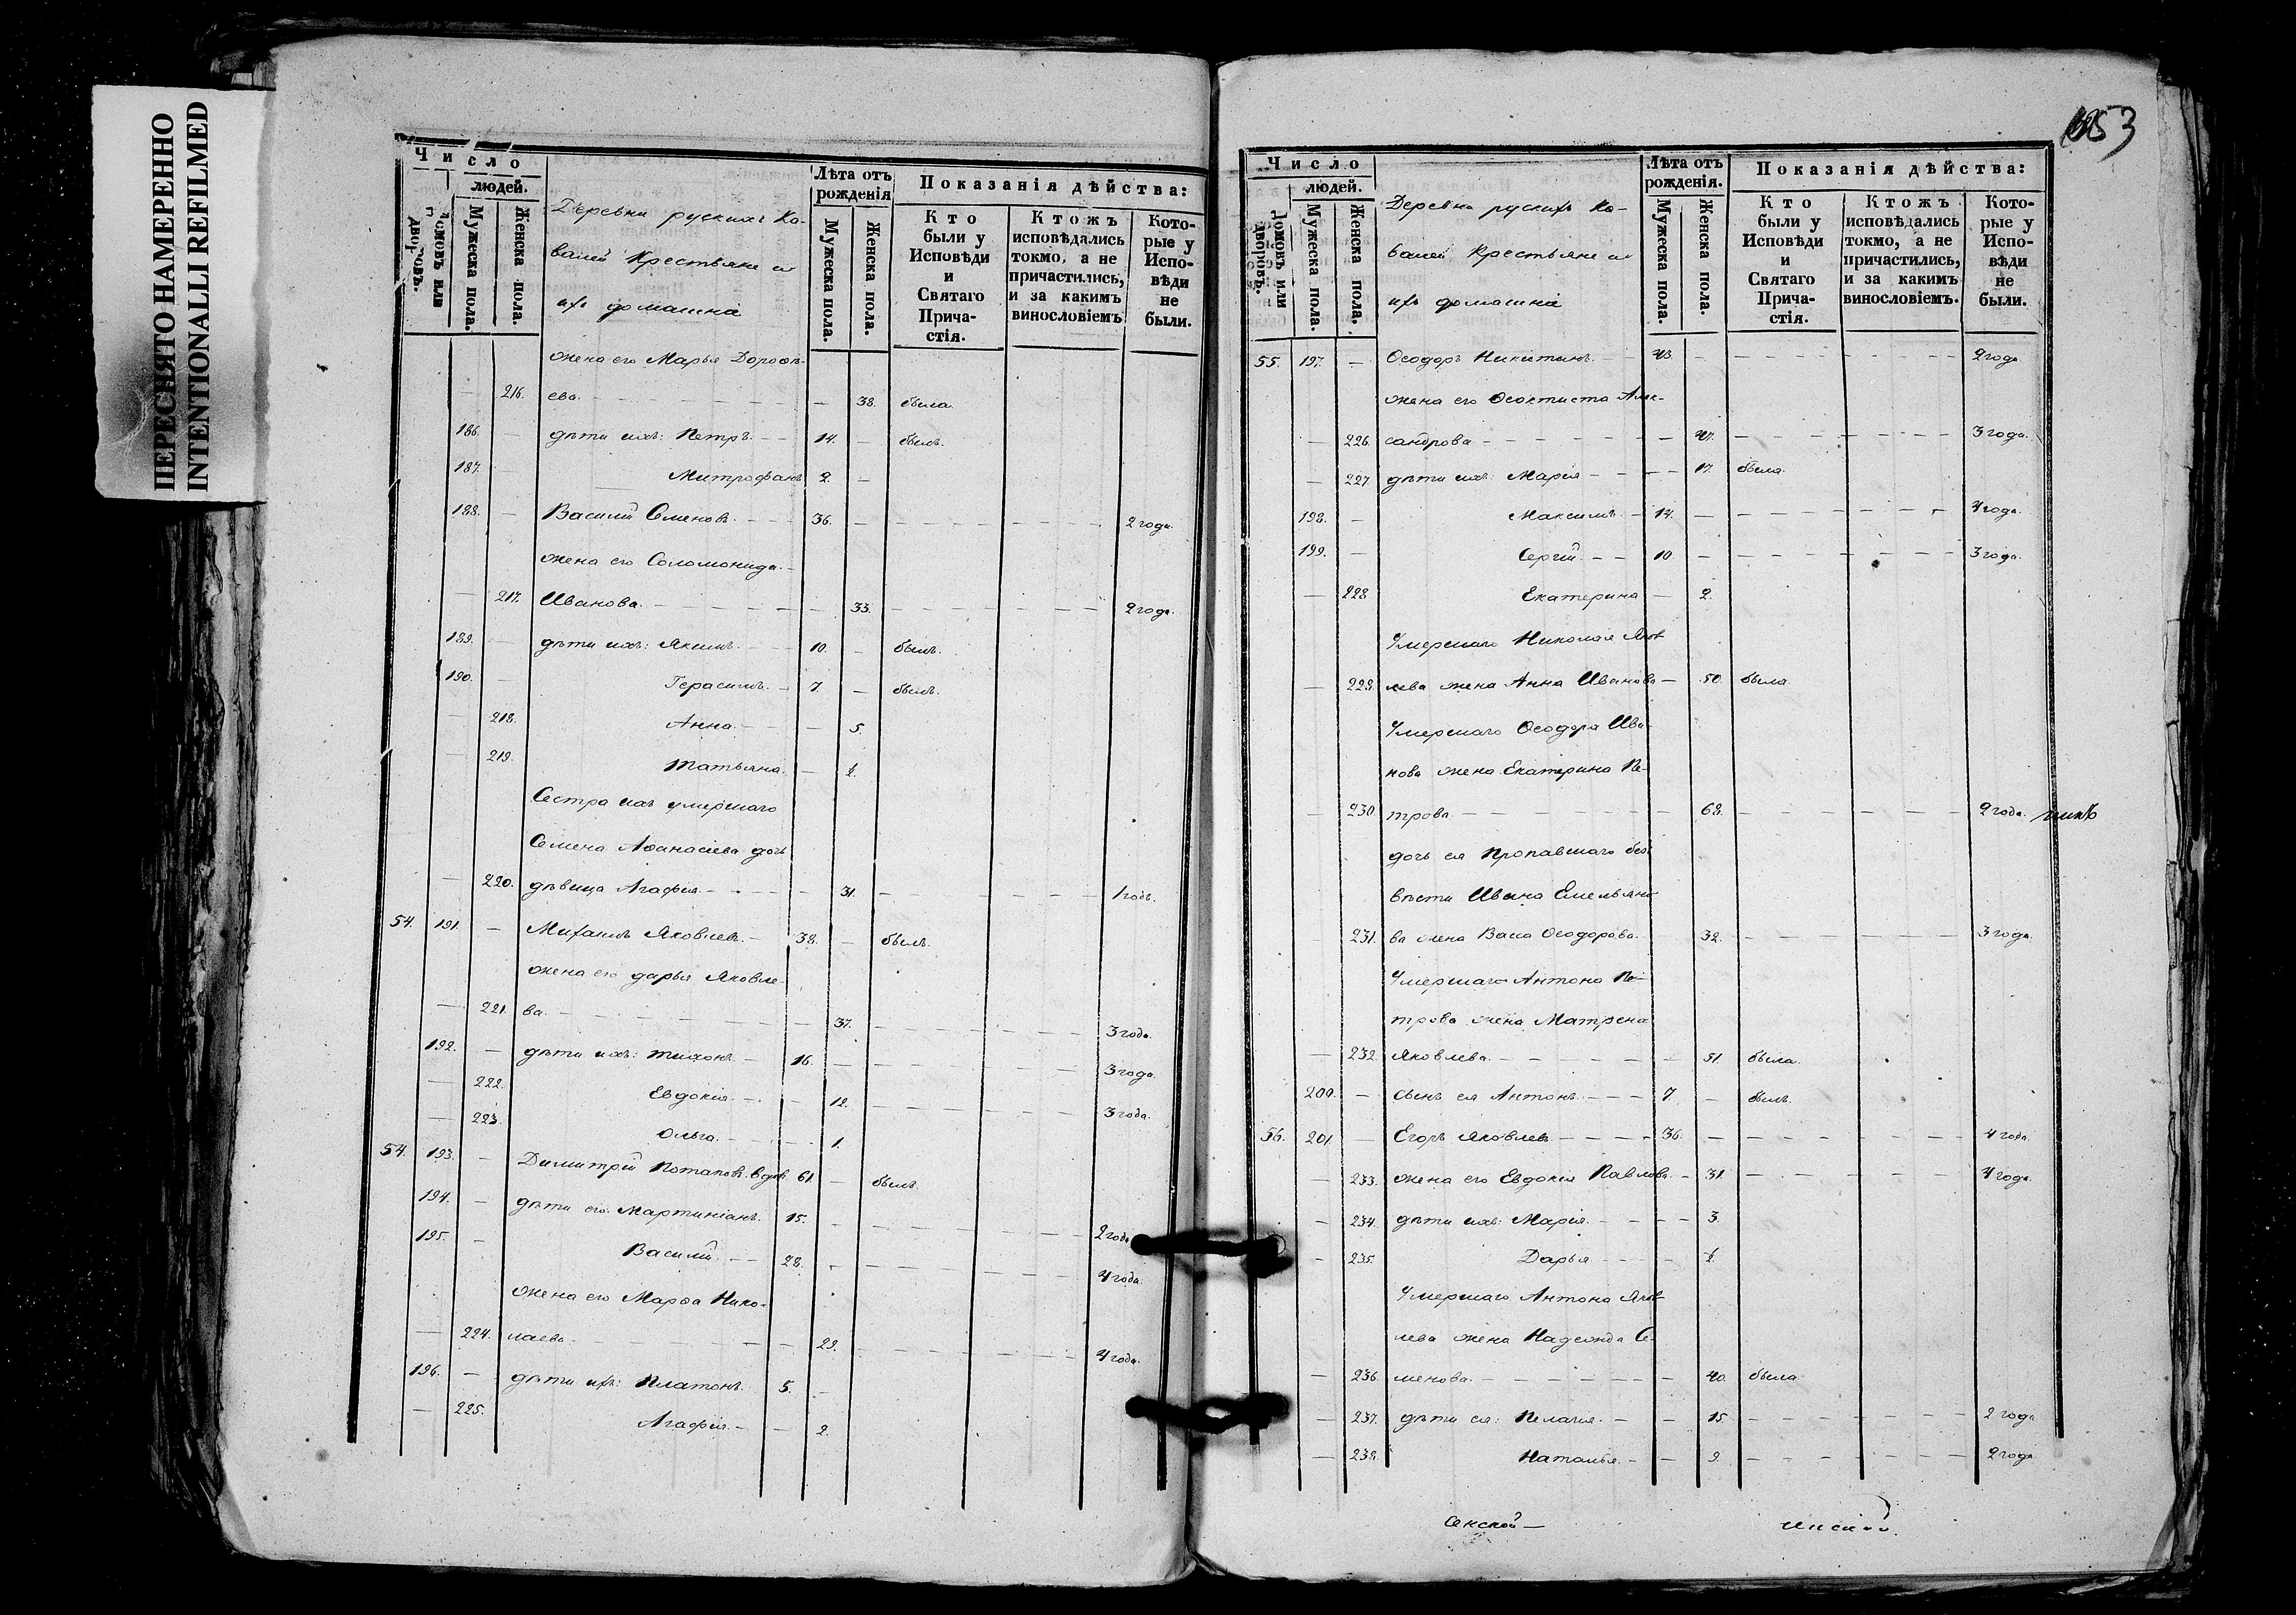 ПЕРЕСНЯТО НАМЕРЕННО
INTENTIONALLI REFILMED
Число
людей.
Домовъ или дворовъ.
Мужеска пола.
Женска пола.
Деревни рускихъ Ко-
валей Крестьяне и
ихъ домашніе
Лѣта отъ рожденія
Мужеска пола.
Женска пола.
Показанія дѣйства:
Кто были у Исповѣди и Святаго Прича-стія.
Ктожъ исповѣдались токмо, а не причастились, и за какимъ винословіемъ
Кото-рые у Испо-вѣди не были.
жена его Марья Дороѳѣ-
— 216. ева. — — 38. была.
186. — дѣти ихъ: Петръ — 14. — былъ.
187. — Митрофанъ 2. —
188. — Василій Семеновъ. — 36. — — 2 года.
жена его Соломонида.
— 217. Иванова. — — 33. — 2 года.
189. — дѣти ихъ: Якимъ. — 10. — былъ.
190. — Герасимъ. — 7. — былъ.
— 218. Анна. — — 5.
— 219. Татьяна. — 1.
Сестра ихъ умершаго
Семена Аѳанасіева дочь
— 220. дѣвица Агафія. — — 31. — 1 годъ.
54. 191. — Михаилъ Яковлевъ. — 38. — былъ.
жена его дарья Яковле-
— 221. ва. — — 37. — 3 года.
192. — дѣти ихъ: тихонъ. — 16. — 3 года.
— 222. Евдокія. — — 12. — 3 года.
— 223. Ольга. — — 1.
54. 193. — Димитрій Потаповъ. вдов. 61. — былъ.
194. — дѣти его: Мартиніанъ. 15. — 2 года
195. — Василій. — 28. — 4 года.
жена его Марѳа Нико-
— 224. лаева — — 29. — 4 года.
196. — дѣти ихъ: Платонъ. 5. —
— 225. Агафія. — — 2.
653
Число
людей.
Домовъ или дворовъ.
Мужеска пола.
Женска пола.
Деревни рускихъ Ко-
валей Крестьяне и
ихъ домашніе
Лѣта отъ рожденія.
Мужеска пола.
Женска пола.
Показанія дѣйства:
Кто были у Исповѣди и Святаго Прича-стія.
Ктожъ исповѣдались токмо, а не причастились, и за какимъ винословіемъ.
Кото-рые у Испо-вѣди не были.
55. 197. — Ѳеодоръ Никитинъ. 43. — — 2 года
жена его Ѳеоктиста Алек-
— 226. сандрова — — 47. — 3 года.
— 227. дѣти ихъ: Марія — — 17. была.
198. — Максимъ. — 14. — — 4 года.
199. — Сергій. — 10 — — 3 года.
— 228. Екатерина — 2.
Умершаго Николая Яков
— 229. лева жена Анна Иванова — 50. была.
Умершаго Ѳеодора Ива-
нова жена Екатерина Пе-
— 230. трова — — 68. — 2 года.
дочь ея Пропавшаго безъ
вѣсти Ивана Емельяно
231. ва жена Васа Ѳеодорова. 32. — 3 года.
Умершаго Антона Пе-
трова жена Матрена
— 232. Яковлева. — — 51. была.
200. — сынъ ея Антонъ. — 7 — былъ.
56. 201 — Егоръ Яковлевъ. — 36. — — 4 года.
— 233. жена его Евдокія Павлова. — 31. — 4 года.
— 234. дѣти ихъ: Марія. — — 3.
— 235. Дарья — — 1.
Умершаго Антона Яков
лева жена Надежда Се-
— 236. менова. — — 40. была
— 237. дѣти ея: Пелагія. — — 15 — 2 года
— 238. Наталья. — — 9. — 2 года